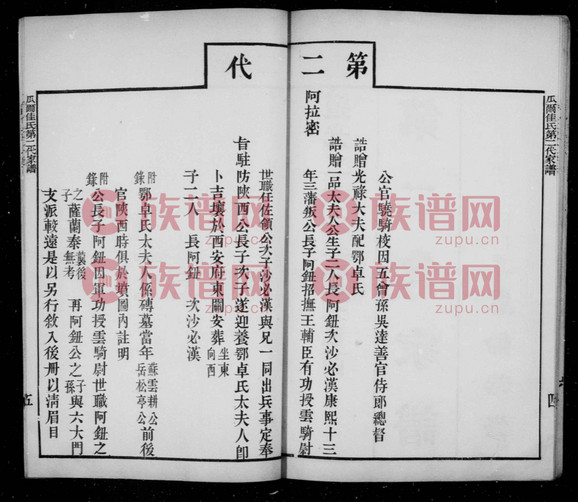 第二代
阿拉密
公官驍騎校因五曾孫吳達善官侍郎總督
誥贈光祿大夫配鄂卓氏
誥贈一品太夫人公生子二人長阿鈕次沙必漢康熙十三
年三藩叛公長子阿鈕招撫王輔臣有功授雲騎尉
世職任佐領公次子沙必漢與兄一同出兵事定奉
旨駐防陝西公長子次子遂迎養鄂卓氏太夫人卽
卜吉壤於西安府東關安葬坐東向西
子二人 長阿鈕 次沙必漢
附錄鄂卓氏太夫人係磚墓當年蘇雲耕公岳松亭公前後
官陝西時俱於塋圖內註明
附錄公長子阿鈕因軍功授雲騎尉世職阿鈕之
子之薩蘭泰襲後無考 再阿鈕公之子孫與六大門
支派較遠是以另行敘入後冊以清眉目
瓜爾佳氏第二代家譜
四
瓜爾佳氏第二代家譜
五
族谱网
zupu.cn
族谱网
zupu.cn
族谱网
zupu.cn
族谱网
zupu.cn